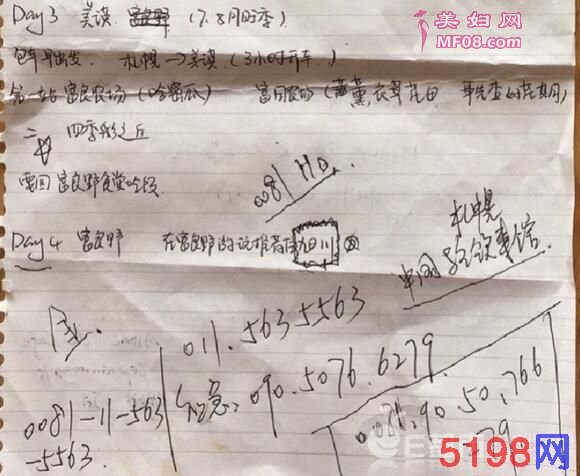 Day 3 美瑛 富良野 (7.8月时季)
美妇网
MF08.com
包车早出发. 札幌→美瑛. (3小时开车.)
第一站 富良农场 (哈密瓜) 富田农场 (薰衣草花田
二、四季彩之丘
0081
富良野食堂吃饭
札幌
Day 4 富良野 在富良野 旭川
中国 领事馆.
011.563 5563
090.5076.6279
0081-11-563
-5563.
0081.90.50.766
279
5198网